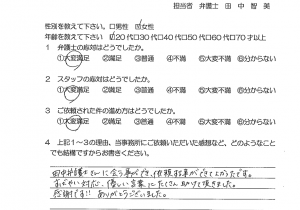 担当者 弁護士 田中智美
性別を教えて下さい。□男性 ☑女性
年齢を教えて下さい ☑20代□30代□40代□50代□60代□70才以上
1 弁護士の応対はどうでしたか。
①大変満足 ②満足 ③普通 ④不満 ⑤大変不満 ⑥分からない
2 スタッフの応対はどうでしたか。
①大変満足 ②満足 ③普通 ④不満 ⑤大変不満 ⑥分からない
3 ご依頼された件の進め方はどうでしたか。
①大変満足 ②満足 ③普通 ④不満 ⑤大変不満 ⑥分からない
4 上記1~3の理由、当事務所にご依頼いただいた感想など、どのようなことでも結構ですからお書きください。
田中弁護士さんに会う事ができ、依頼する事ができてよかったです。
おだやかい対応、優しい言葉にたくさん助けて頂きました。
感謝です!! ありがとうございました。